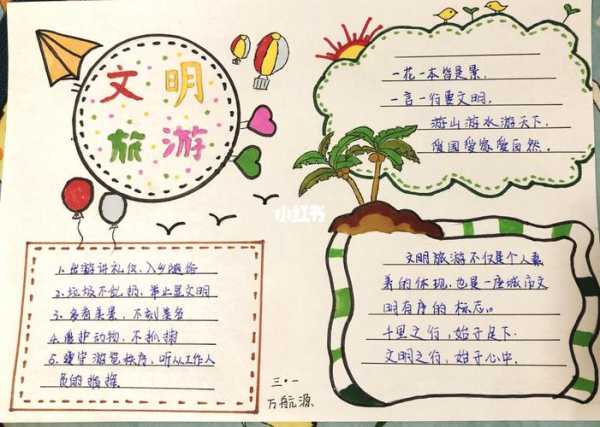 文明
旅游
一花一木皆是景,
一言一行要文明。
游山游水游天下,
爱国爱家爱自然。
小红书
1. 出游讲礼仪,入乡随俗
2. 垃圾不乱扔,举止显文明
3. 多看美景,不刻美名
4. 爱护动物,不抓捕
5. 遵守游览秩序,听从工作人
员的指挥
文明旅游不仅是个人素
养的体现,也是一座城市文
明有序的标志。
千里之行,始于足下,
文明之行,始于心中。
三·1
万航源